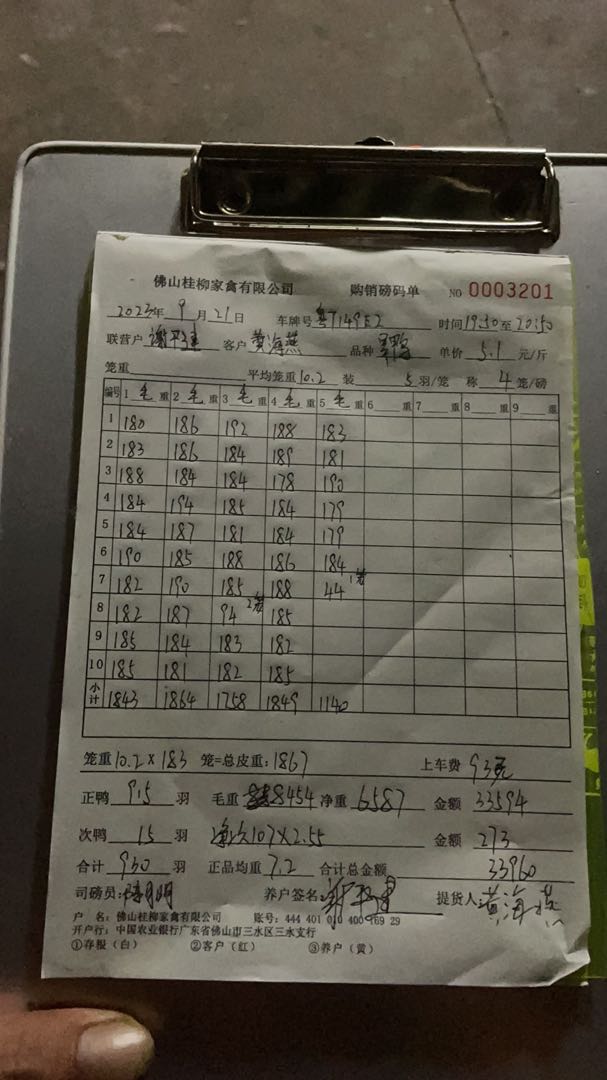 佛山桂柳家禽有限公司 购销磅码单 NO 0003201
2023年 9月 21日 车牌号 粤T149E2 时间19:50至20:50
联营户 谢平建 客户 黄海燕 品种 单价 5.1 元/斤
笼重 平均笼重10.2 装 5 羽/笼 称 4 笼/磅
编号 1 毛 重 2 毛 重 3 毛 重 4 毛 重 5 毛 重 6 重 7 重 8 重 9 重
1 180 186 192 188 183
2 183 186 184 189 181
3 188 184 184 178 190
4 184 194 185 184 179
5 184 187 181 184 179
6 190 185 188 186 184
7 182 190 185 188 44 1笼
8 182 187 94 2笼 185
9 185 184 183 182
10 185 181 182 185
小计 1843 1864 1758 1849 1140
笼重10.2×183 笼=总皮重:1867 上车费 93元
正鸭 915 羽 毛重 8454 净重 6587 金额 33594
次鸭 15 羽 107×2.55 金额 273
合计 930 羽 正品均重 7.2 合计总金额 33960
司磅员: 养户签名: 提货人 黄海燕
户 名:佛山桂柳家禽有限公司 账号:444 401 010 400 169 29
开户行:中国农业银行广东省佛山市三水区三水支行
①存根(白) ②客户(红) ③养户(黄)